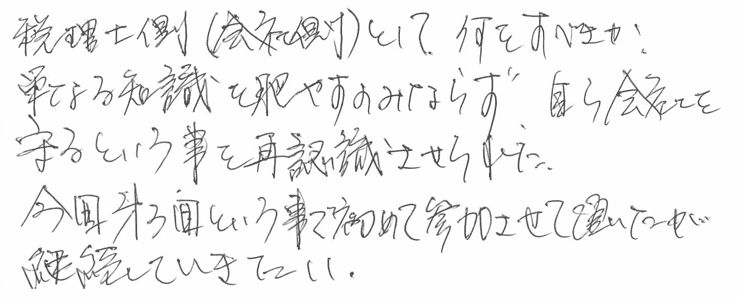 税理士側(会社側)として何をすべきか、
単なる知識を肥やすのみならず 自ら会社を
守るという事を再認識させられた。
今回第3回という事で初めて参加させて頂いたが
継続していきたい.